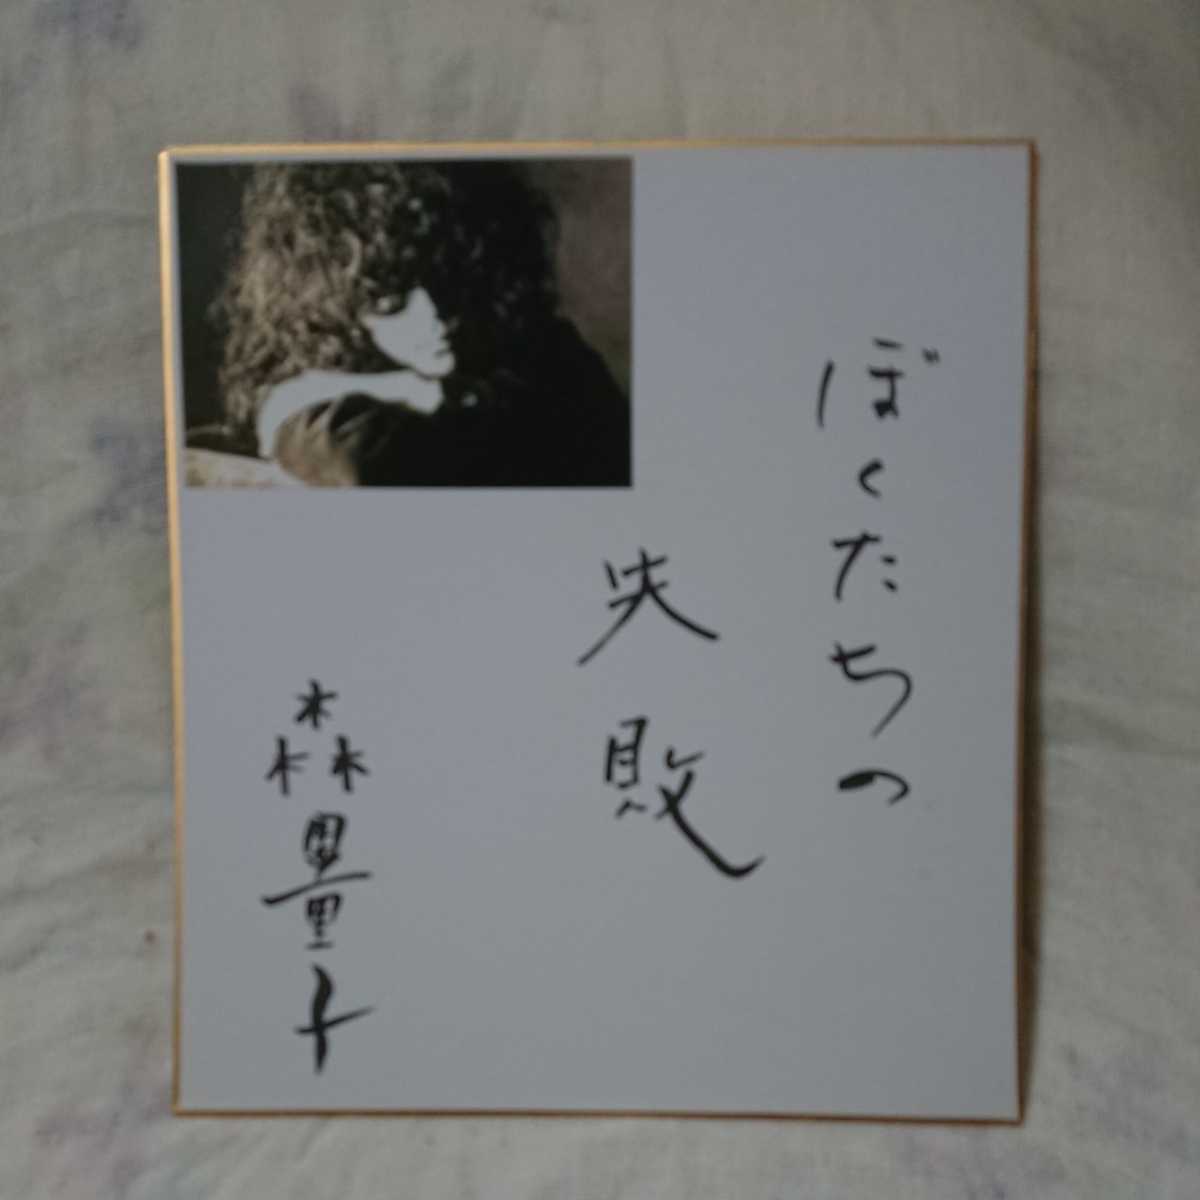 ぼくたちの
失敗
森田童子